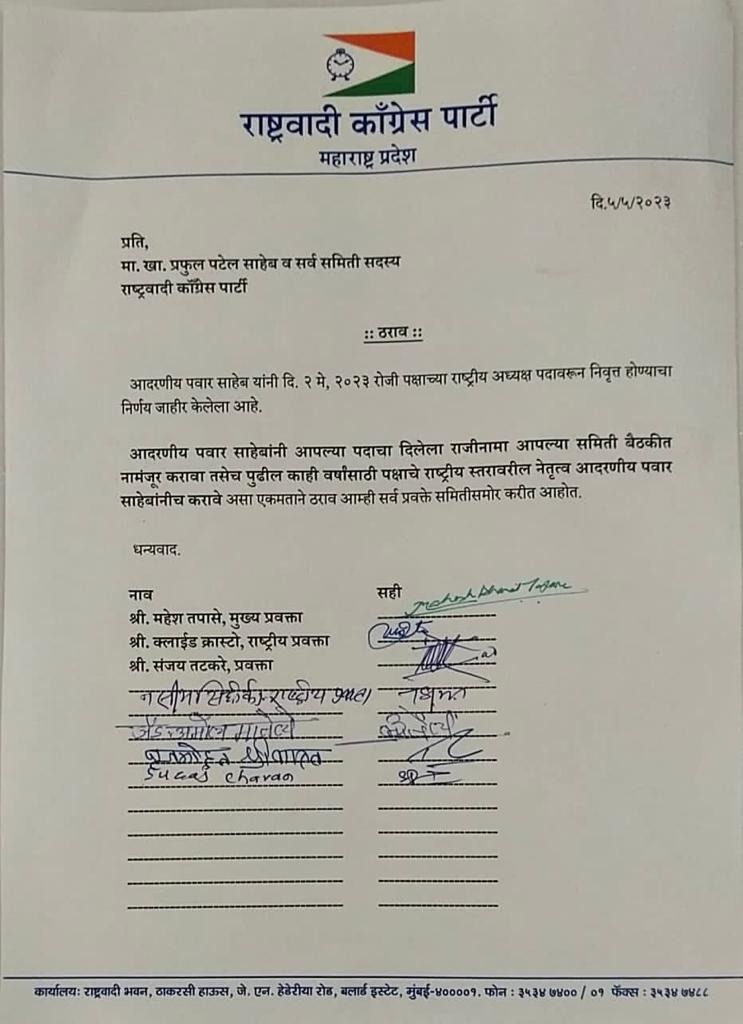 राष्ट्रवादी काँग्रेस पार्टी
महाराष्ट्र प्रदेश
दि.५/५/२०२३
प्रति,
मा. खा. प्रफुल पटेल साहेब व सर्व समिती सदस्य
राष्ट्रवादी काँग्रेस पार्टी
:: ठराव ::
आदरणीय पवार साहेब यांनी दि. २ मे, २०२३ रोजी पक्षाच्या राष्ट्रीय अध्यक्ष पदावरून निवृत्त होण्याचा
निर्णय जाहीर केलेला आहे.
आदरणीय पवार साहेबांनी आपल्या पदाचा दिलेला राजीनामा आपल्या समिती बैठकीत
नामंजूर करावा तसेच पुढील काही वर्षांसाठी पक्षाचे राष्ट्रीय स्तरावरील नेतृत्व आदरणीय पवार
साहेबांनीच करावे असा एकमताने ठराव आम्ही सर्व प्रवक्ते समितीसमोर करीत आहोत.
धन्यवाद.
नाव सही
श्री. महेश तपासे, मुख्य प्रवक्ता
श्री. क्लाईड क्रास्टो, राष्ट्रीय प्रवक्ता
श्री. संजय तटकरे, प्रवक्ता
नसीम सिद्दीकी राष्ट्रीय
अमोल मातेले
Charan
कार्यालयः राष्ट्रवादी भवन, ठाकरसी हाऊस, जे. एन. हेडेरीया रोड, बलार्ड इस्टेट, मुंबई-४००००१. फोन : ३५३४ ७४०० / ०१ फॅक्स : ३५३४ ७४८८